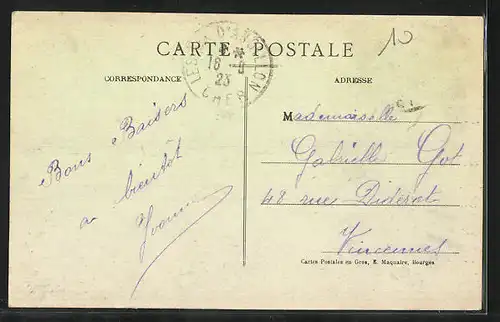 CARTE POSTALE
10
16
23
CHER
CORRESPONDANCE
ADRESSE
Bons Baisers
a bientôt
Yvonne
Mademoiselle
Gabrielle Got
48 rue Diderot
Vincennes
Cartes Postales en Gros, E. Maquaire, Bourges